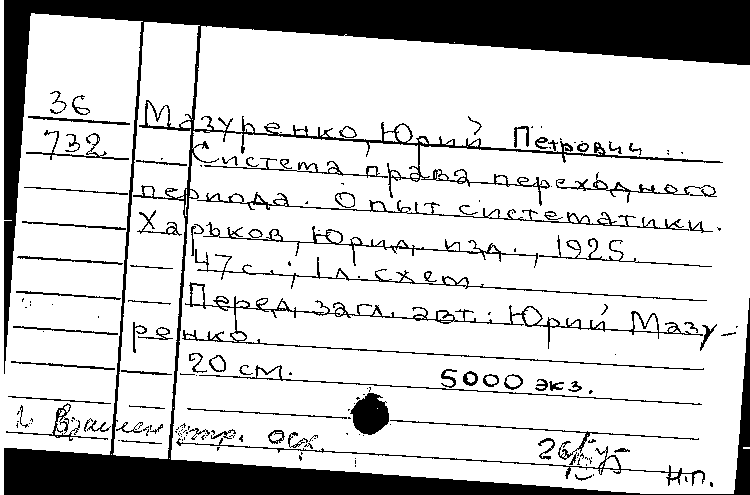 36 Мазуренко, Юрий Петрович
732 Система права переходного
периода. Опыт систематики.
Харьков, Юрид. изд., 1925.
47 с.; 1 л. схем.
Перед загл. авт.: Юрий Мазу-
ренко.
20 см. 5000 экз.
Взамен утр. 26 75 Н.П.